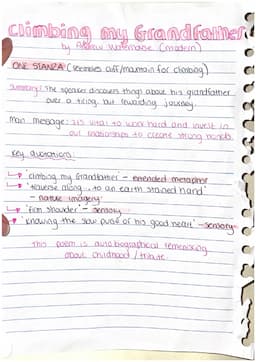 climbing my Grandfather
by Andrew Waterhouse (modern)
ONE STANZA (resembles cliff/mountain for climbing)
Summary: The speaker discovers things about his grandfather
over a tiring, but rewarding journey.
Main message: its vital to work hard and invest in
our relationships to create strong bonds.
Key quotations:
'climbing my Grandfather' - extended metaphor
'traverse along... to an earth stained hand'
- nature imagery
'firm shoulder' - sensory
'knowing the slow pulse of his good heart' - sensory
This poem is autobiographical reminiscing
about childhood / tribute.